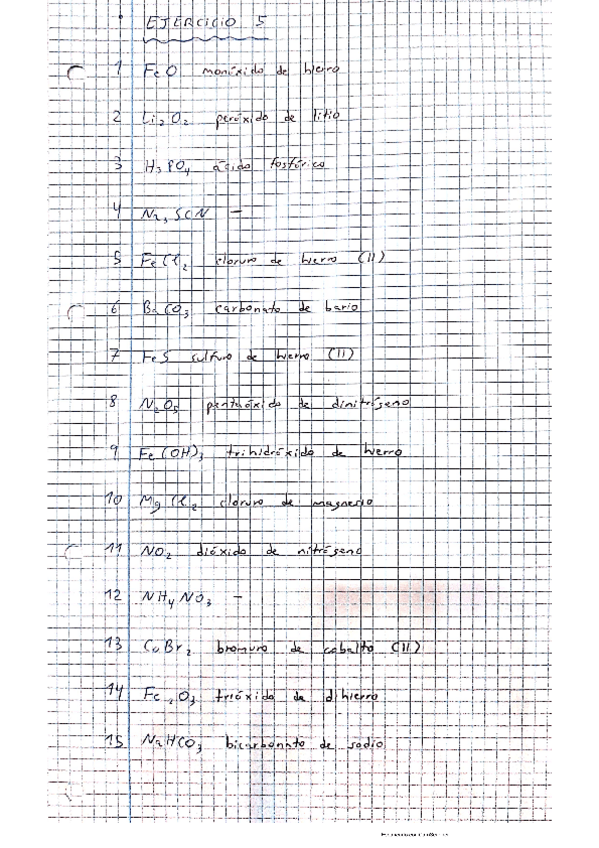 EJERCICIO 5
1 FeO monóxido de hierro
2 Li₂O₂ peróxido de litio
3 H₃PO₄ ácido fosfórico
4 Na, SCN -
5 FeCl₂ cloruro de hierro (II)
6 BaCO₃ carbonato de bario
7 FeS sulfuro de hierro (II)
8 N₂O₅ pentaóxido de dinitrógeno
9 Fe(OH)₃ trihidróxido de hierro
10 MgCl₂ cloruro de magnesio
11 NO₂ dióxido de nitrógeno
12 NH₄NO₃ -
13 CoBr₂ bromuro de cobalto (II)
14 Fe₂O₃ trióxido de dihierro
15 NaHCO₃ bicarbonato de sodio